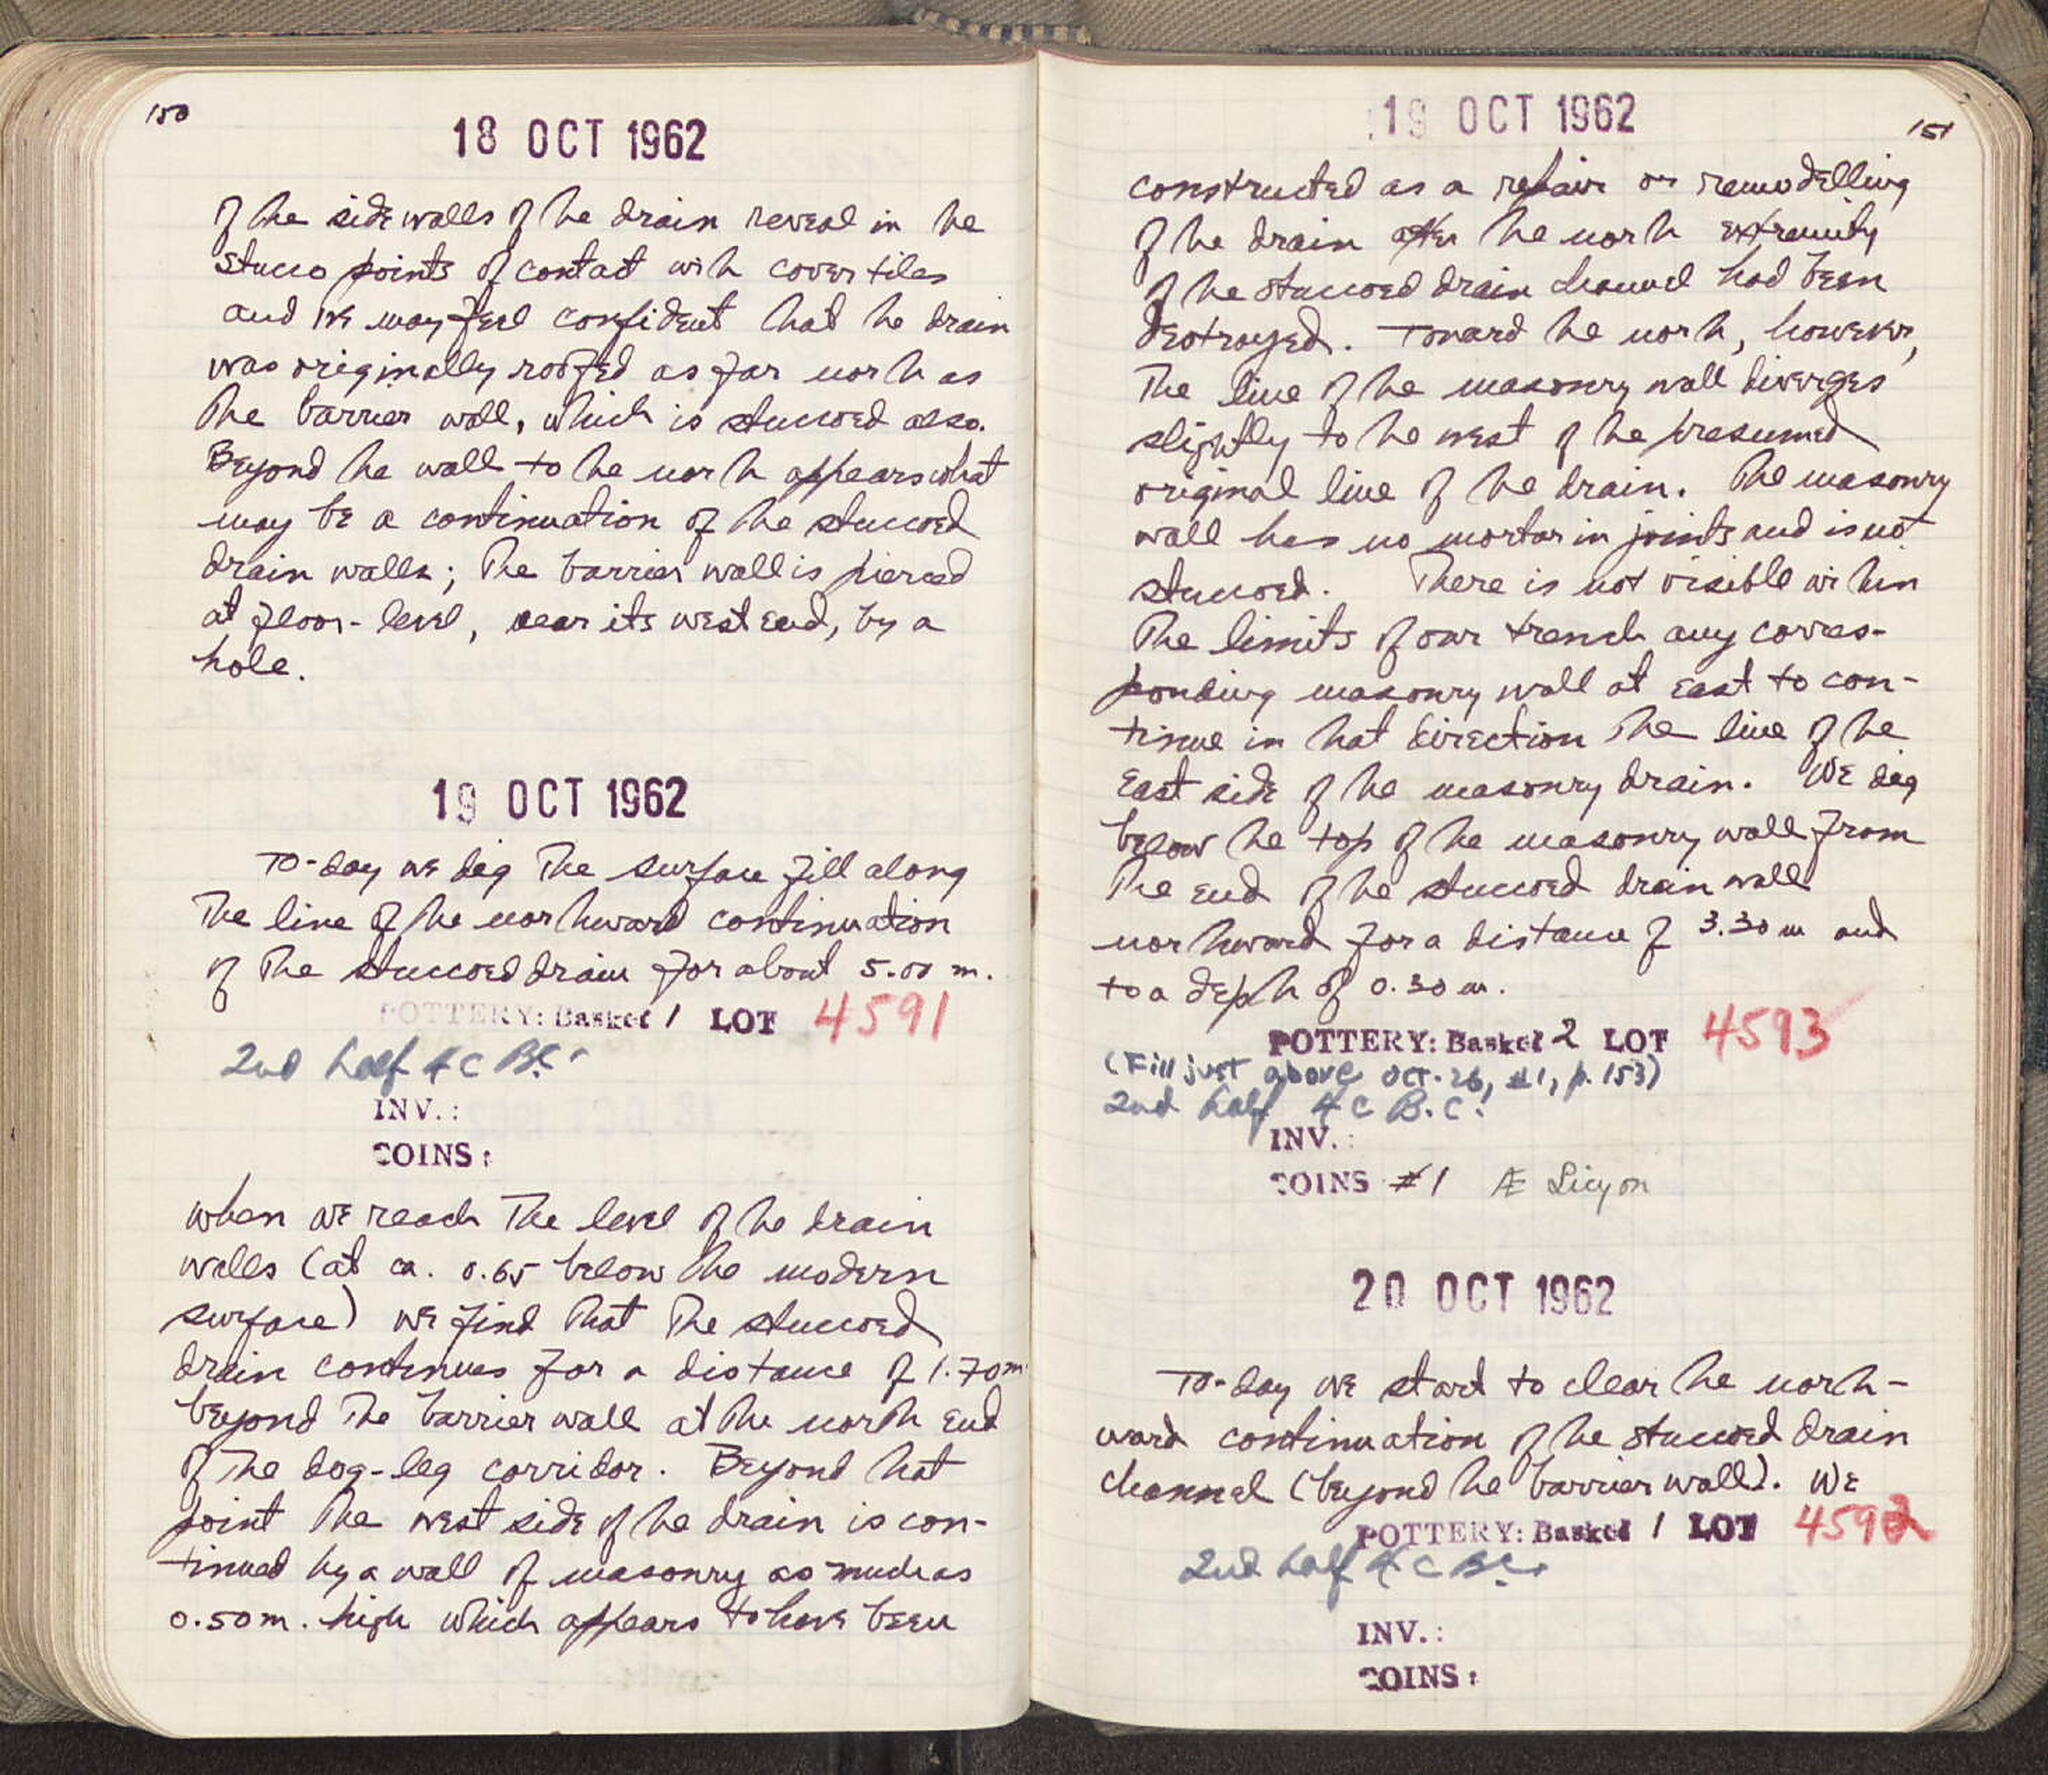 150
18 OCT 1962
of the side walls of the drain reveal in the
stucco points of contact with cover tiles
and we may feel confident that the drain
was originally roofed as far north as
the barrier wall, which is stuccoed also.
Beyond the wall to the north appears what
may be a continuation of the stuccoed
drain walls; the barrier wall is pierced
at floor-level, near its west end, by a
hole.
19 OCT 1962
To-day we dig the surface fill along
the line of the northward continuation
of the stuccoed drain for about 5.00 m.
POTTERY: Basket 1 LOT 4591
2nd half 4 C B.C.
INV.:
COINS:
When we reach the level of the drain
walls (at ca. 0.65 below the modern
surface) we find that the stuccoed
drain continues for a distance of 1.70 m
beyond the barrier wall at the north end
of the dog-leg corridor. Beyond that
point the west side of the drain is con-
tinued by a wall of masonry as much as
0.50 m. high which appears to have been
19 OCT 1962
151
constructed as a repair or remodelling
of the drain after the north extremity
of the stuccoed drain channel had been
destroyed. Toward the north, however,
the line of the masonry wall diverges
slightly to the west of the presumed
original line of the drain. The masonry
wall has no mortar in joints and is not
stuccoed. There is not visible within
the limits of our trench any corres-
ponding masonry wall at east to con-
tinue in that direction the line of the
east side of the masonry drain. We dig
below the top of the masonry wall from
the end of the stuccoed drain wall
northward for a distance of 3.30 m and
to a depth of 0.30 m.
POTTERY: Basket 2 LOT 4593
(Fill just above Oct. 26, #1, p. 153)
2nd half 4 C B.C.
INV.:
COINS #1 Æ Sicyon
20 OCT 1962
To-day we start to clear the north-
ward continuation of the stuccoed drain
channel (beyond the barrier wall). We
POTTERY: Basket 1 LOT 4592
2nd half 4 C B.C.
INV.:
COINS: